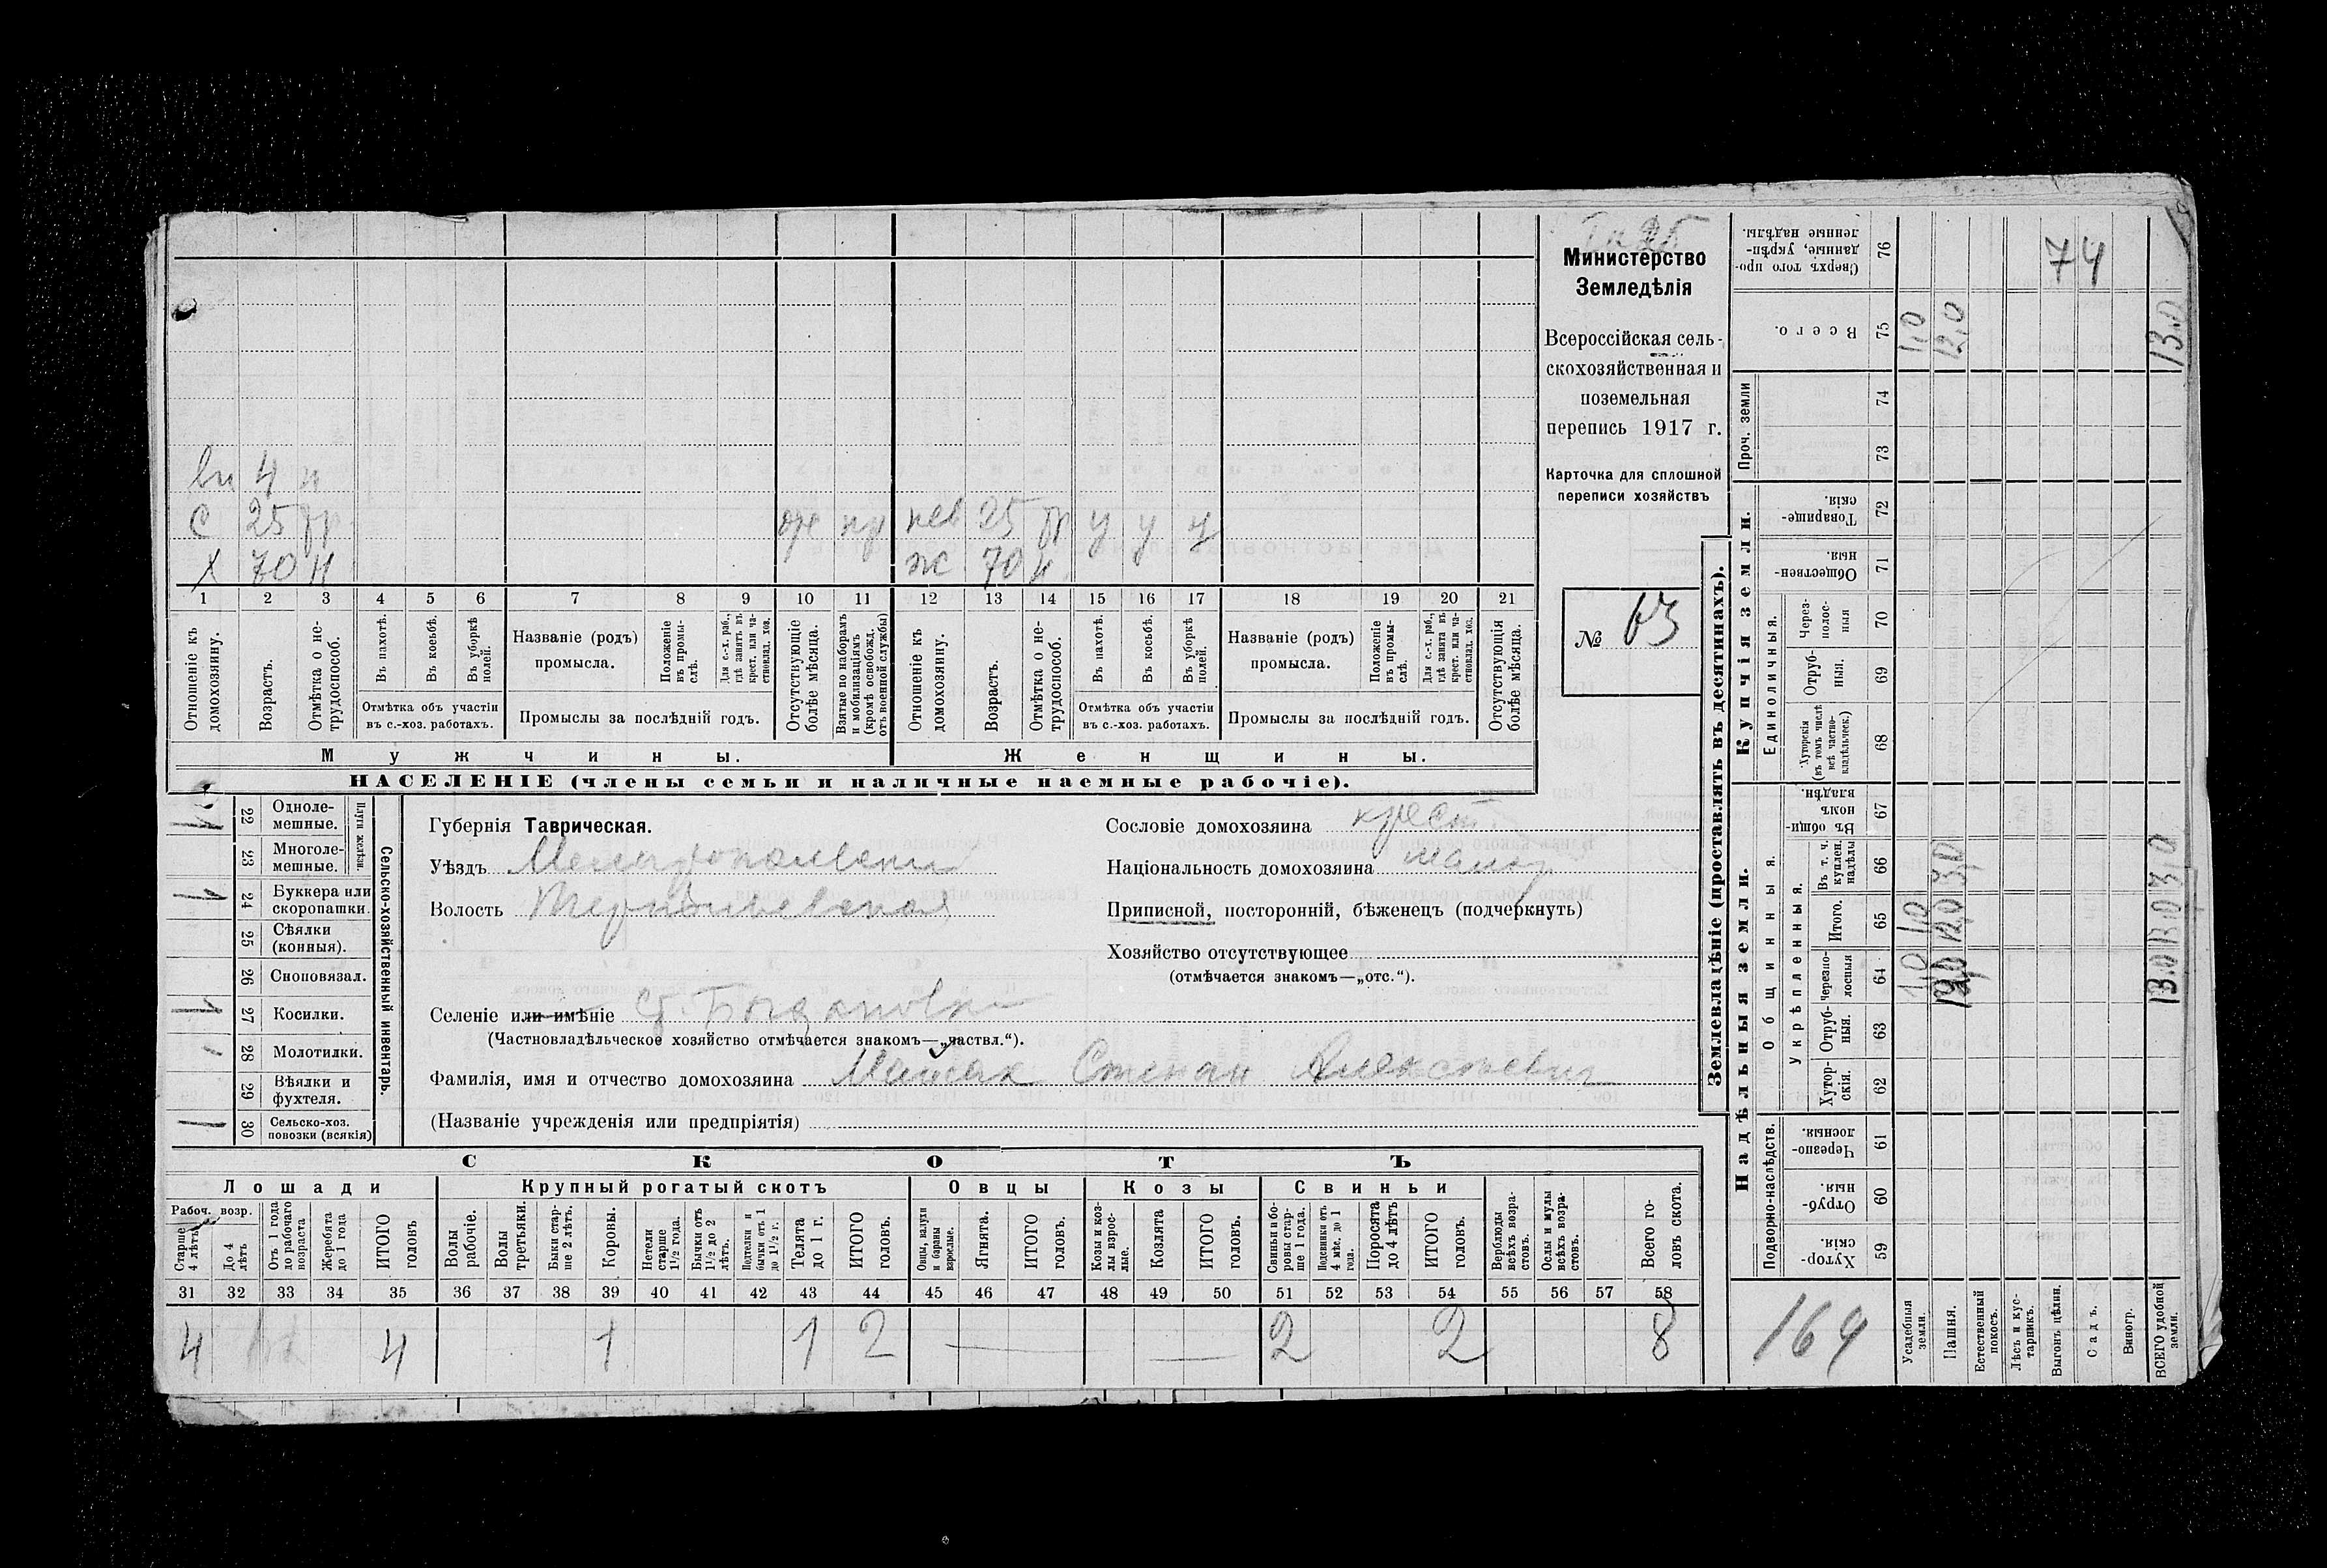 Министерство
Земледѣлія
Всероссійская сель-
скохозяйственная и
поземельная
перепись 1917 г.
Карточка для сплошной
переписи хозяйствъ
№ 63
вн 4 н
С 25 тр
Х 70 н
нев 25 тр у у у
ж 70 н
1 2 3 4 5 6 7 8 9 10 11 12 13 14 15 16 17 18 19 20 21
Отношеніе къ домохозяину.
Возрастъ.
Отмѣтка о не-трудоспособ.
Въ пахотѣ.
Въ косьбѣ.
Въ уборкѣ полей.
Отмѣтка объ участіи
въ с.-хоз. работахъ.
Названіе (родъ)
промысла.
Положеніе въ промы-слѣ.
Для с.-х. раб., гдѣ занятъ въ крест. или ча-стновлад. хоз.
Промыслы за послѣдній годъ.
Отсутствующіе болѣе мѣсяца.
Взятые по наборамъ и мобилизаціямъ (кромѣ освобожд. отъ военной службы)
Отношеніе къ домохозяину.
Возрастъ.
Отмѣтка о не-трудоспособ.
Въ пахотѣ.
Въ косьбѣ.
Въ уборкѣ полей.
Отмѣтка объ участіи
въ с.-хоз. работахъ.
Названіе (родъ)
промысла.
Положеніе въ промы-слѣ.
Для с.-х. раб., гдѣ занята въ крест. или ча-стновлад. хоз.
Промыслы за послѣдній годъ.
Отсутствующія болѣе мѣсяца.
Мужчины. Женщины.
НАСЕЛЕНІЕ (члены семьи и наличные наемные рабочіе).
Сельско-хозяйственный инвентарь.
Плуги желѣзн.
22 Одноле-мешные.
23 Многоле-мешные.
24 Буккера или скоропашки.
25 Сѣялки (конныя).
26 Сноповязал.
27 Косилки.
28 Молотилки.
29 Вѣялки и фухтеля.
30 Сельско-хоз. повозки (всякія)
Губернія Таврическая.
Уѣздъ Мелитопольскій
Волость
Селеніе или имѣніе с. Богдановка
(Частновладѣльческое хозяйство отмѣчается знакомъ—„частвл.“).
Фамилія, имя и отчество домохозяина Степан Алексѣевич
(Названіе учрежденія или предпріятія)
Сословіе домохозяина крест.
Національность домохозяина малор
Приписной, посторонній, бѣженецъ (подчеркнуть)
Хозяйство отсутствующее
(отмѣчается знакомъ—„отс.“).
СКОТЪ
Лошади Крупный рогатый скотъ Овцы Козы Свиньи
Рабоч. возр.
Старше 4 лѣтъ
До 4 лѣтъ
Отъ 1 года до рабочаго возраста
Жеребята до 1 года
ИТОГО головъ
Волы рабочіе.
Волы третьяки.
Быки стар-ше 2 лѣтъ.
Коровы.
Нетели старше 1½ года.
Бычки отъ 1½ до 2 лѣтъ.
Подтелки и бычки отъ 1 до 1½ г.
Телята до 1 г.
ИТОГО головъ.
Овцы, валухи и бараны взрослые.
Ягнята.
ИТОГО головъ.
Козы и коз-лы взрос-лые.
Козлята
ИТОГО головъ.
Свиньи и бо-ровы стар-ше 1 года.
Подсвинки отъ 4 мѣс. до 1 года.
Поросята до 4 лѣтъ
ИТОГО головъ.
Верблюды всѣхъ возра-стовъ.
Ослы и мулы всѣхъ возра-стовъ.
Всего го-ловъ скота.
31 32 33 34 35 36 37 38 39 40 41 42 43 44 45 46 47 48 49 50 51 52 53 54 55 56 57 58
4 4 1 1 2 2 2 8
Землевладѣніе (проставлять въ десятинахъ).
Надѣльныя земли. Купчія земли. Проч. земли
Подворно-наслѣдств. Общинныя. Единоличныя.
Укрѣпленныя.
59 Хутор-скія.
60 Отруб-ныя.
61 Черезпо-лосныя.
62 Хутор-скія.
63 Отруб-ныя.
64 Черезпо-лосныя
65 Итого.
66 Въ т. ч. куплен. надѣлы
67 Въ общи-номъ владѣн.
68 Хуторскія (въ томъ числѣ всѣ частно-владѣльческ.)
69 Отруб-ныя.
70 Через-полос-ныя
71 Обществен-ныя.
72 Товарище-скія.
73 74
75 Всего.
76 Сверхъ того про-данные, укрѣп-ленные надѣлы.
Усадебныя земли. 1,0 1,0 1,0
Пашня. 12,0 3,0 12,0
Естественный покосъ.
Лѣсъ и кус-тарникъ.
Выгонъ цѣлин.
Садъ.
Виногр.
ВСЕГО удобной земли. 13.0 13.0 3,0 13.0
74
169